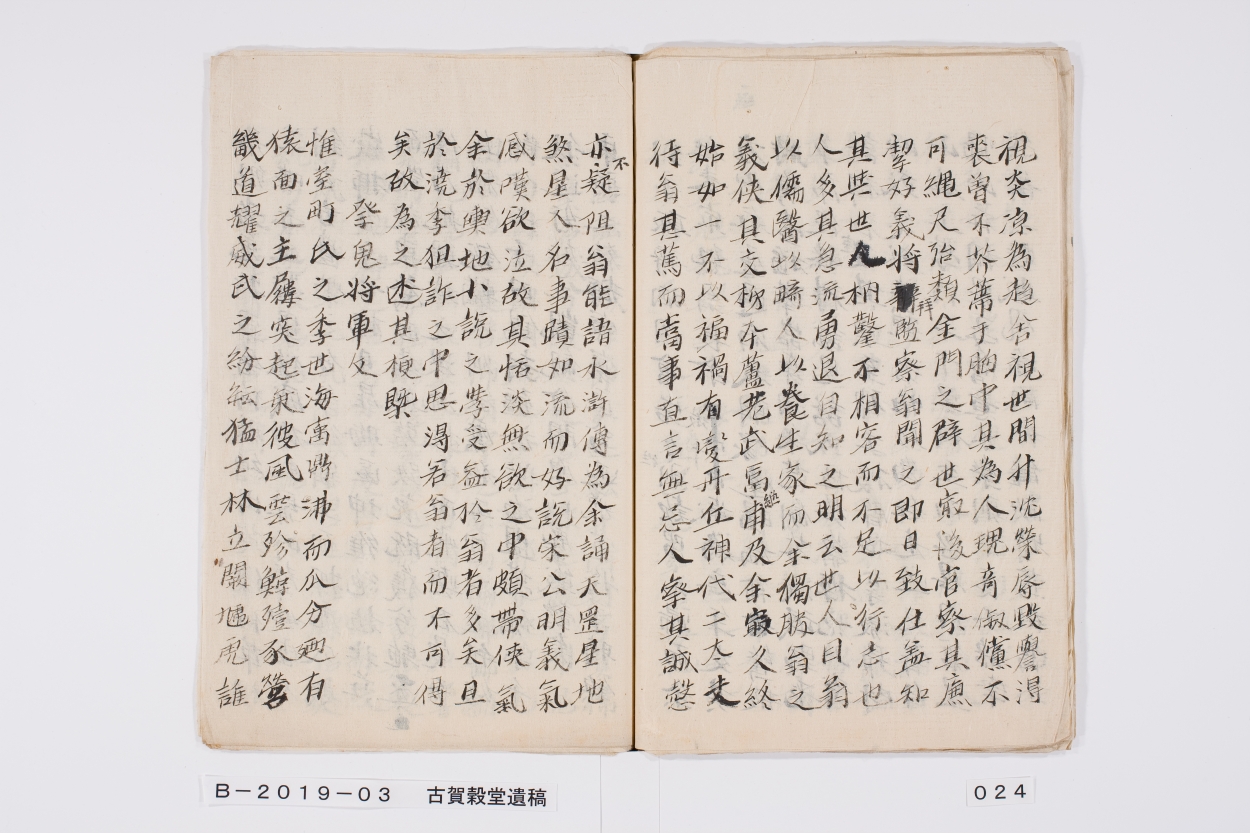 視炎凉為趨舍視世間升沈榮辱毀譽得
喪曽不芥蔕于胸中其為人瑰竒俶儻不
可繩尺殆類金門之辟世寂後官察其廉
㓗好義將拜監察翁聞之即日致仕盖知
其與世枘鑿不相容而不足以行志也
人多其急流勇退自知之明云世人目翁
以儒醫以畸人以養生家而余獨服翁之
義俠其交柳本蘆老武冨甫及余寂久終
始如一不以福禍有變丹丘神代二大夫
待翁甚篤而當事直言無忌人察其誠慤
亦不疑阻翁能語水滸傳為余誦天罡星地
煞星人名事蹟如流而好說宋公明義氣
感嘆欲泣故其恬淡無欲之中頗帶俠氣
余於輿地小說之學受益於翁者多矣且
於澆季狙詐之中思得若翁者而不可得
矣故為之述其梗槩
祭鬼將軍文
惟室町氏之季世海寓鼎沸而瓜分廼有
猿面之主屢突起乘彼風雲殄鯨殪豕營
畿道耀威武之紛紜猛士林立闞虓虎誰
B－2019－03　古賀穀堂遺稿
024